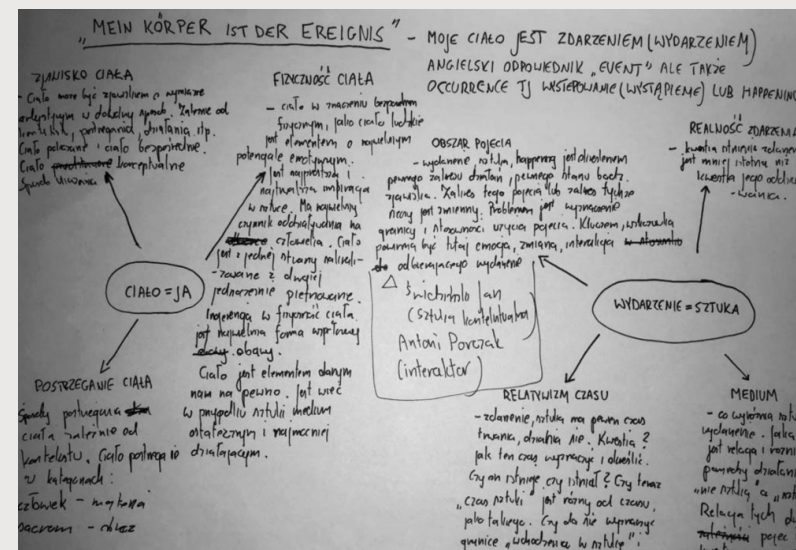 „MEIN KÖRPER IST DER EREIGNIS"
– MOJE CIAŁO JEST ZDARZENIEM (WYDARZENIEM)
ANGIELSKI ODPOWIEDNIK „EVENT" ALE TAKŻE
OCCURRENCE TJ WYSTĘPOWANIE (WYSTĄPIENIE) LUB HAPPENING
ZJAWISKO CIAŁA
– Ciało może być zjawiskiem o wymiarze
artystycznym w dokładny sposób. Zależnie od
działania itp.
Ciało pokazane i ciało bezpośrednie.
Ciało konceptualne
FIZYCZNOŚĆ CIAŁA
– ciało w znaczeniu bezpośrednim
fizycznym, jako ciało ludzkie
jest elementem o największym
potencjale emotywnym.
Jest najprostszą i
najtrwalszą inspiracją
w sztuce. Ma największy
czynnik oddziaływania na
człowieka. Ciało
jest z jednej strony
z drugiej
jednocześnie piętnowane.
Ingerencja w fizyczność ciała
jest
obawy.
Ciało jest elementem danym
nam na pewno. Jest więc
w przypadku sztuki medium
ostatecznym i najmocniej
działającym.
OBSZAR POJĘCIA
– wydarzenie, sztuka, happening jest określeniem
pewnego zakresu działań, pewnego stanu bądź
zjawiska. Zakres tego pojęcia lub zakres tychże
jest zmienny. Problemem jest wyznaczenie
granicy i stosowności użycia pojęcia. Kluczem, wskazówką
powinna być tutaj emocja, zmiana, interakcja
odbierającego wydarzenie
REALNOŚĆ ZDARZENIA
– kwestia istnienia zdarzenia
jest mniej istotna niż
kwestia jego
CIAŁO = JA
Świdziński Jan
(sztuka kontekstualna)
Antoni Porczak
(interaktor)
WYDARZENIE = SZTUKA
POSTRZEGANIE CIAŁA
Sposoby postrzegania
ciała zależnie od
kontekstu. Ciało postrzega się
w kategoriach:
człowiek –
sacrum –
RELATYWIZM CZASU
– zdarzenie, sztuka ma pewien czas
trwania, działania się. Kwestia?
Jak ten czas wyznaczyć i określić.
Czy on istnieje czy istniał? Czy teraz
„czas sztuki" jest różny od czasu,
jako takiego. Czy da się wyznaczyć
granice „wchodzenia w sztukę" i
MEDIUM
– co wyróżnia
wydarzenie. Jaka
jest relacja i
pomiędzy
„nie sztuką" a
Relacja tych
pojęć